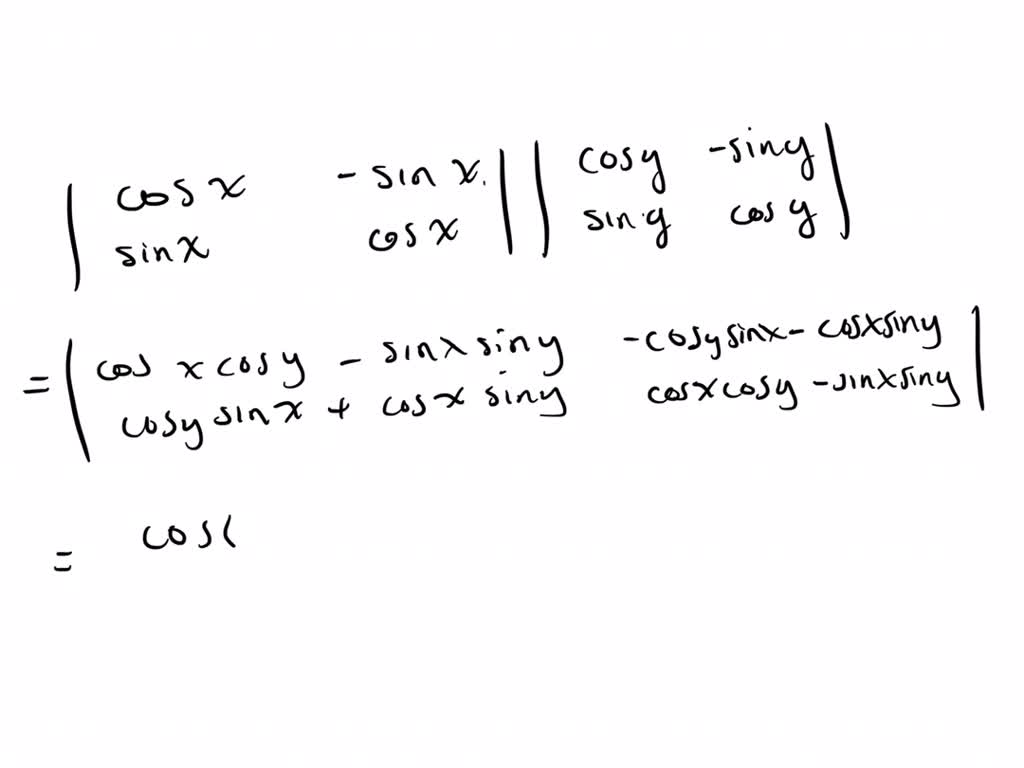 | cos x -sin x. | | cosy -siny |
| sinx cosx | | sin.y cosy |
= | cos x cosy - sinx siny -cosysinx- cosxsiny |
| cosysinx + cosx siny cosxcosy -sinxsiny |
= cos(